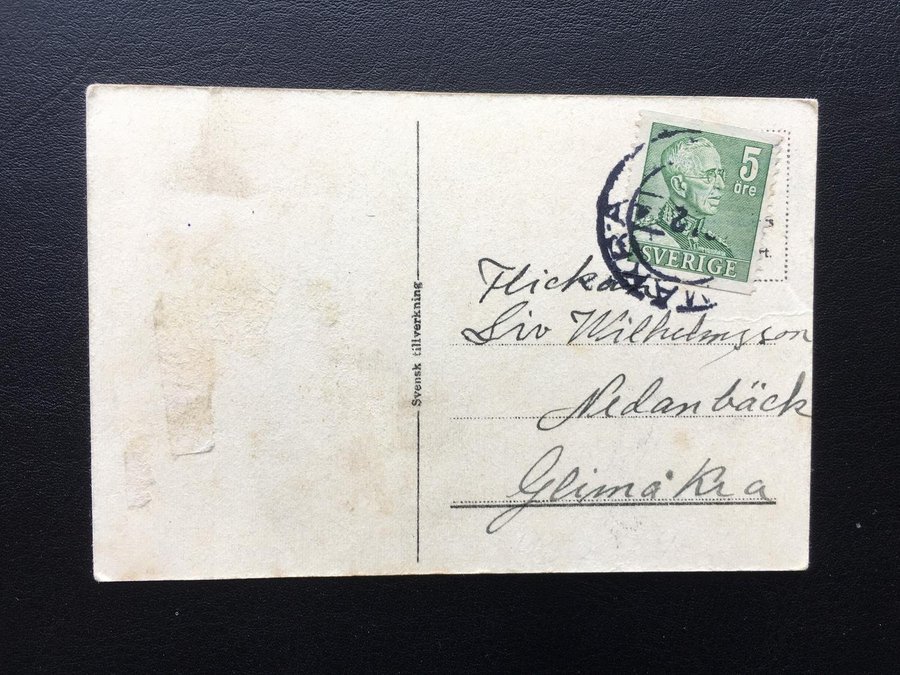 5
öre
SVERIGE
Svensk tillverkning
Flickan
Liv Wilhelmsson
Nedanbäck
Glimåkra